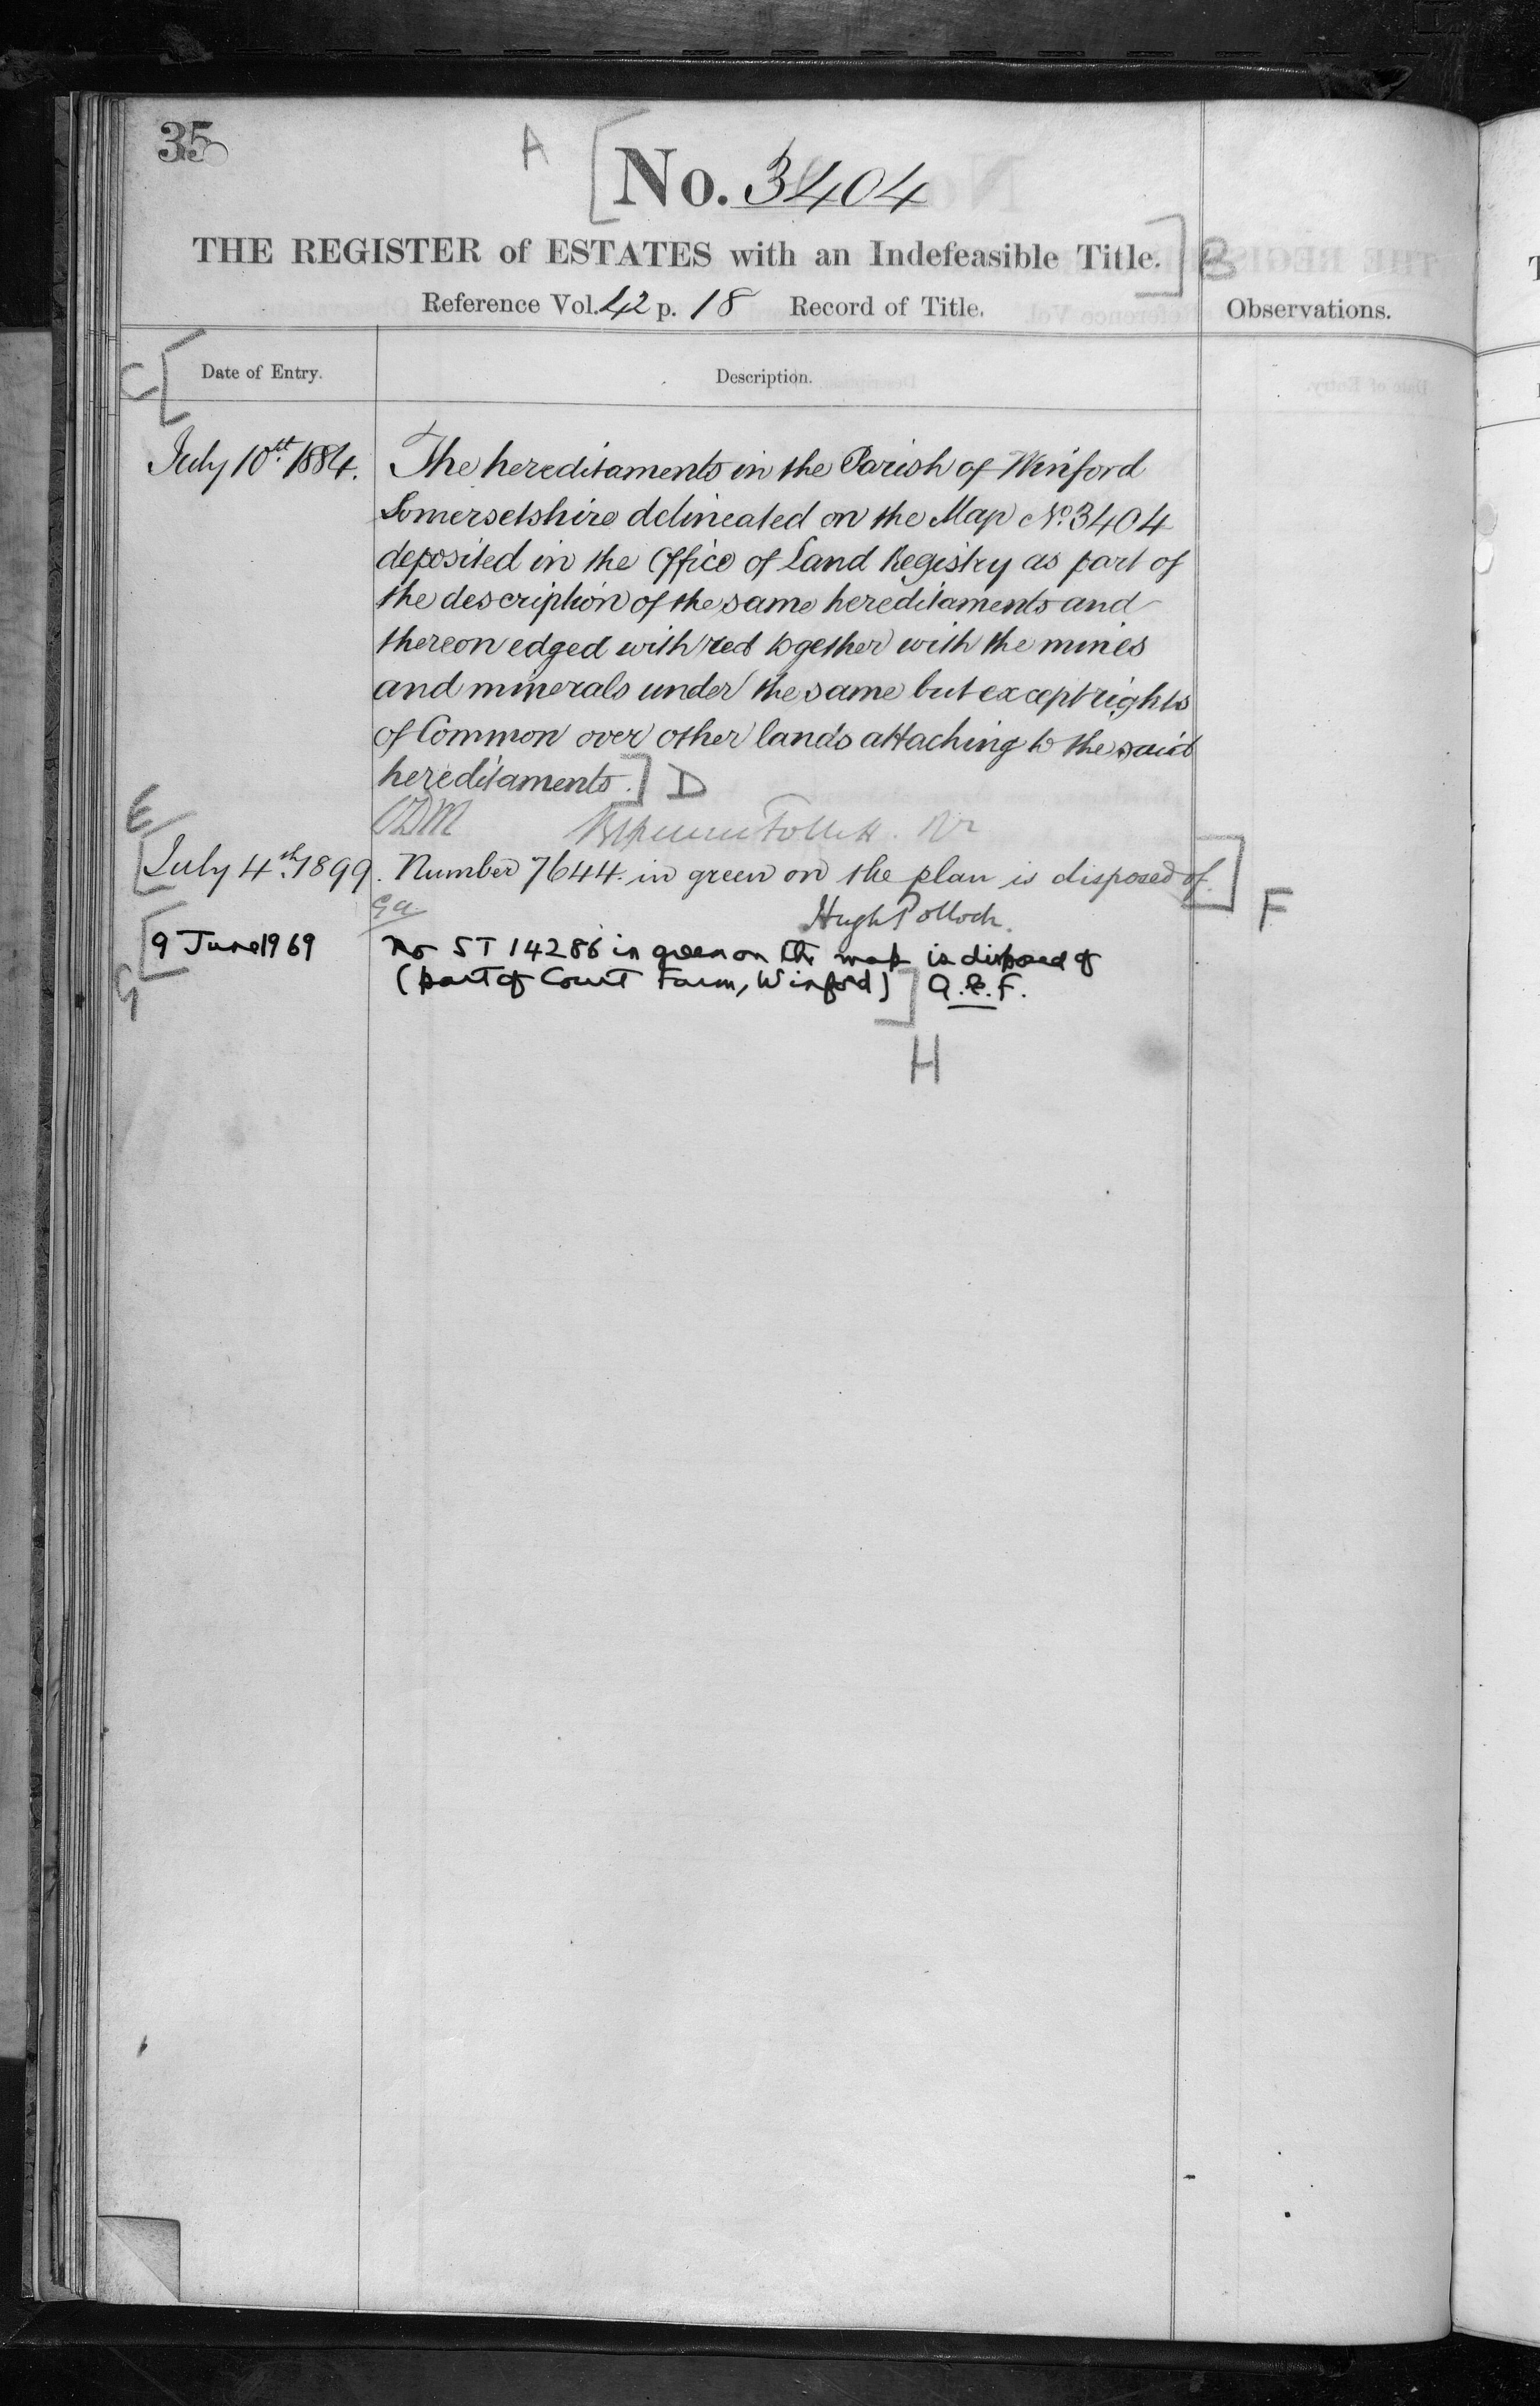 35
A
[No. 3404
THE REGISTER of ESTATES with an Indefeasible Title.] B
Reference Vol. 42 p. 18 Record of Title.
Observations.
C [
Date of Entry.
Description.
July 10th 1884.
The hereditaments in the Parish of Winford
Somersetshire delineated on the Map No. 3404
deposited in the Office of Land Registry as part of
the description of the same hereditaments and
thereon edged with red together with the mines
and minerals under the same but except rights
of Common over other lands attaching to the said
hereditaments.] D
E
[July 4th 1899.
Number 7644. in green on the plan is disposed of.] F
Hugh Pollock.
[9 June 1969
G
No ST 14286 in green on the map is disposed of
(part of Court Farm, Winford)] A.E.F.
H